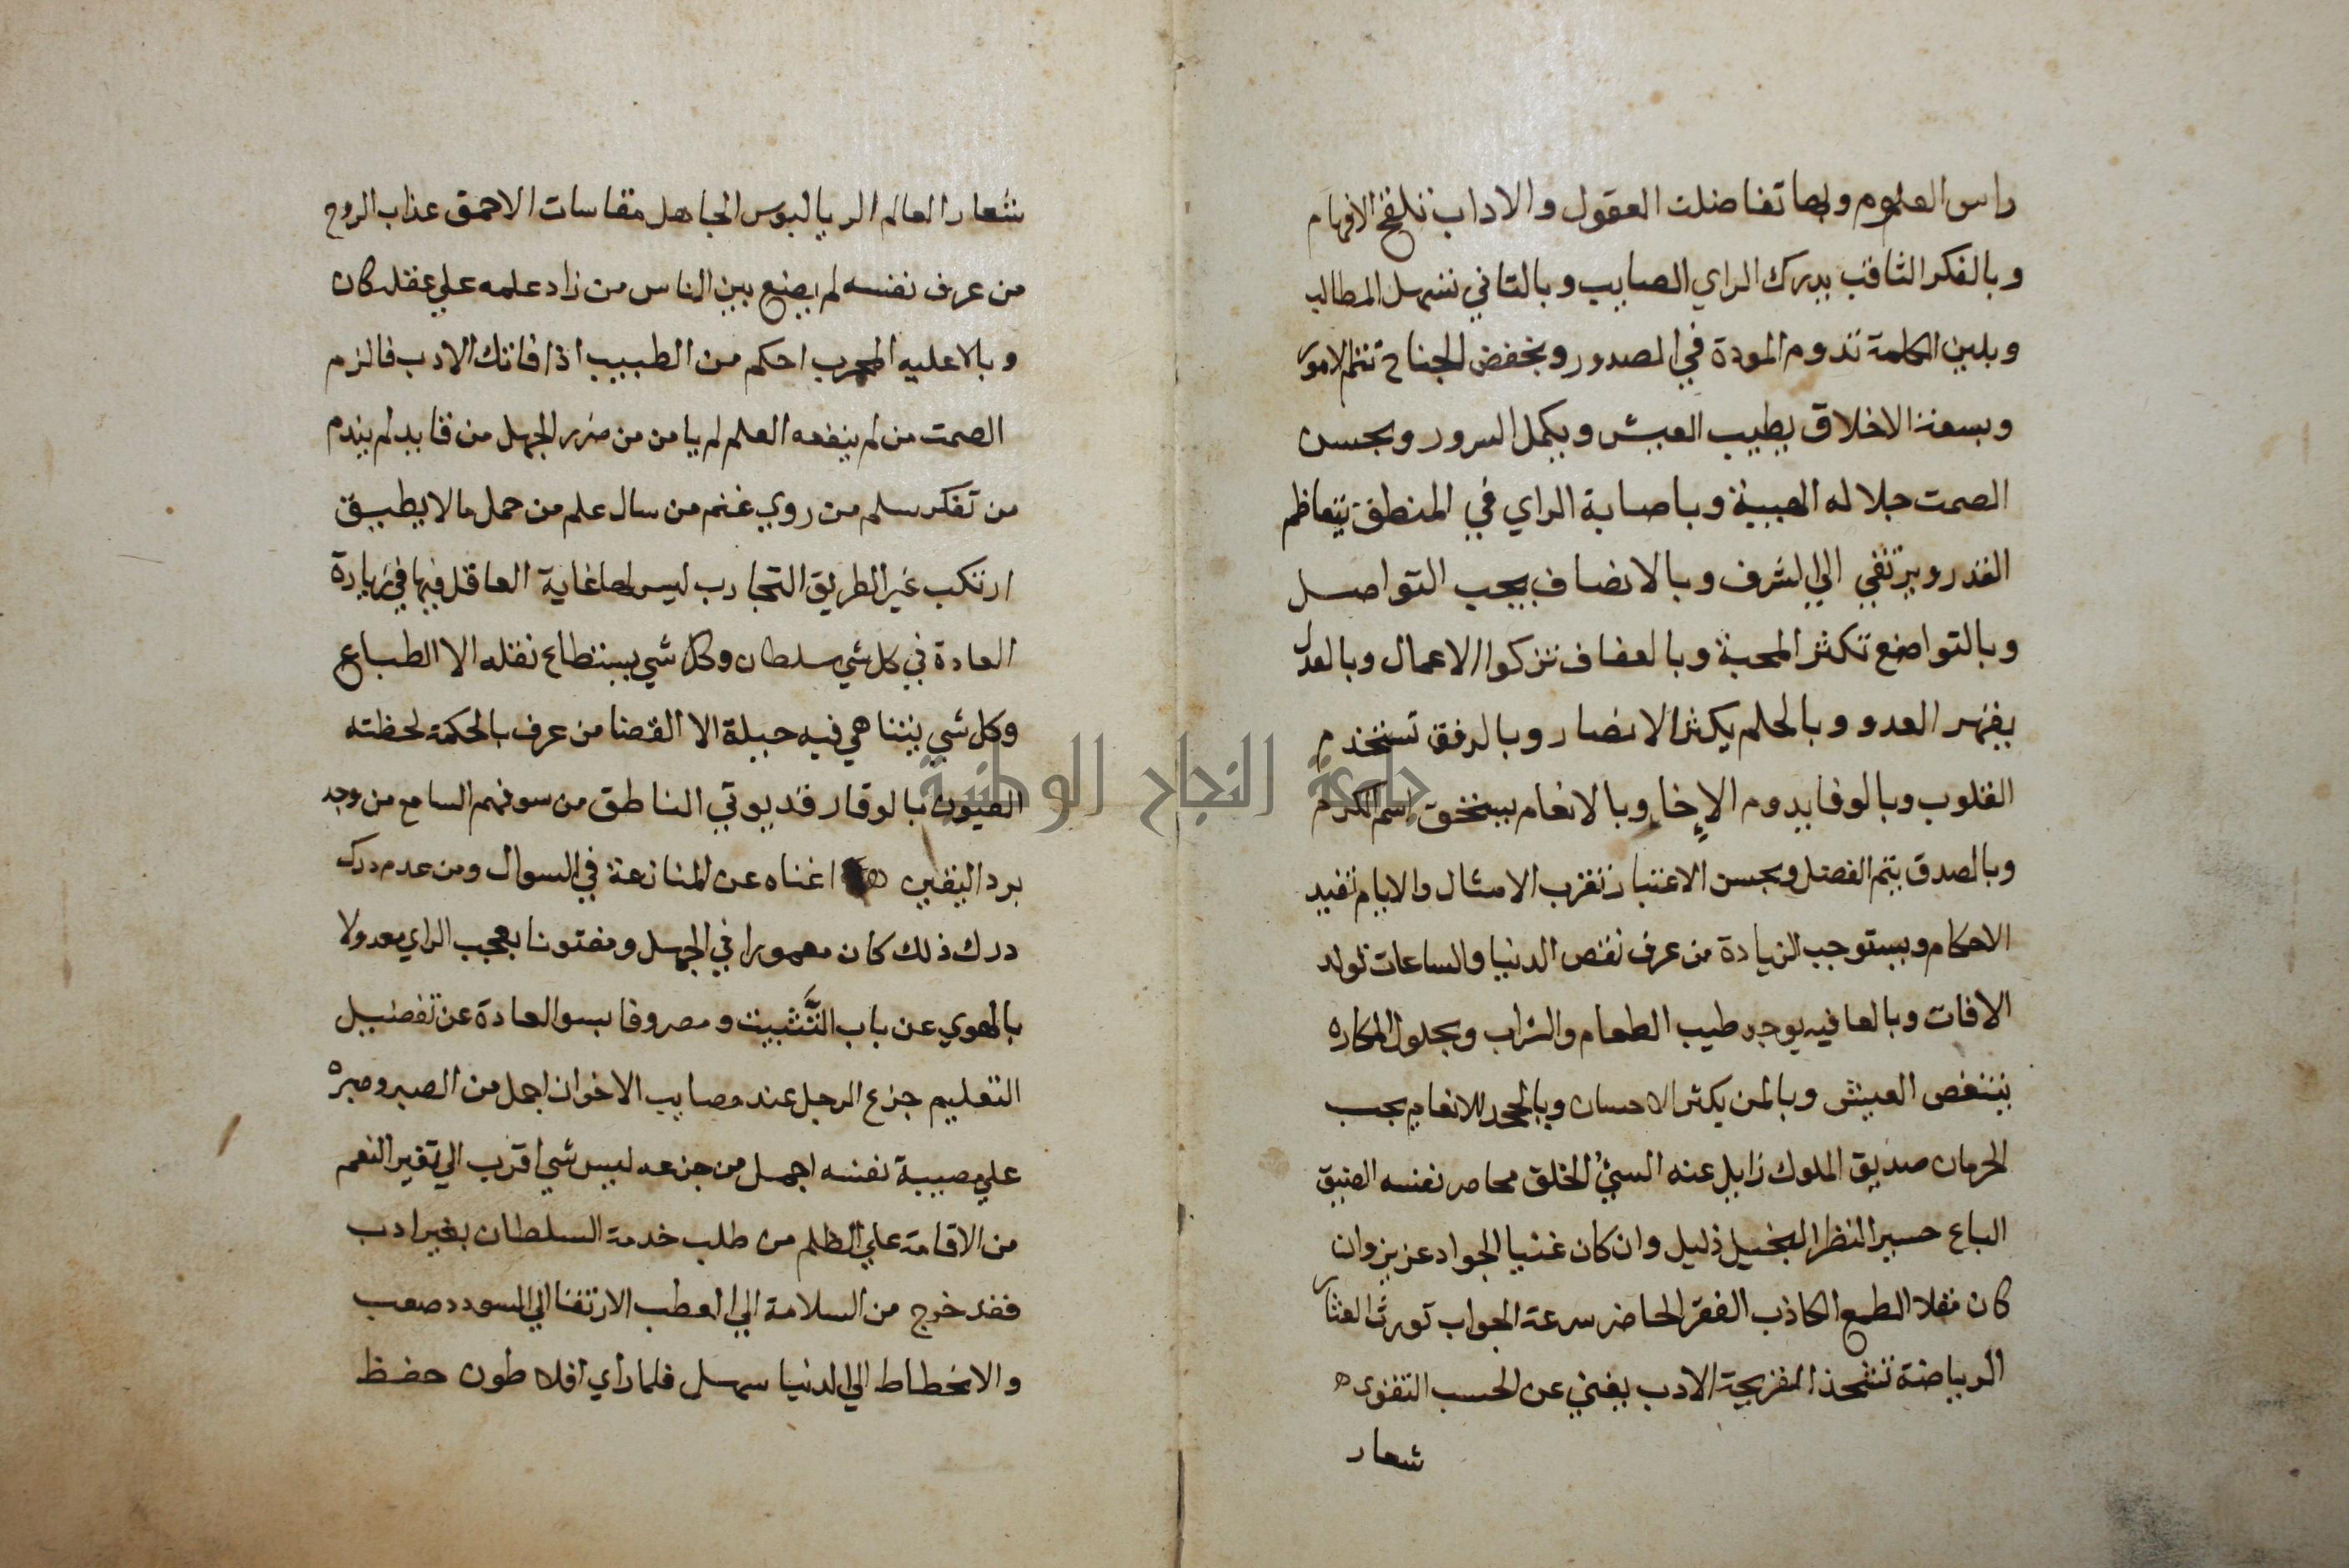 راس العلوم وبها تفاضلت العقول والاداب تلقح الافهام
وبالفكر الثاقب يدرك الراي الصايب وبالتاني تسهل المطالب
وبلين الكلمة تدوم المودة في الصدور وبخفض الجناح تتم الامور
وبسعة الاخلاق يطيب العيش ويكمل السرور وبحسن
الصمت جلاله الهيبة وباصابة الراي في المنطق يتعاظم
القدر ويرتقي الي الشرف وبالانصاف يجب التواصل
وبالتواضع تكثر المحبة وبالعفاف تزكوا الاعمال وبالعدل
يقهر العدو وبالحلم يكثر الانصار وبالرفق تستخدم
القلوب وبالوفا يدوم الإخاء وبالانعام يستحق اسم الكرم
وبالصدق يتم الفضل وبحسن الاعتبار تضرب الامثال والايام تفيد
الاحكام ويستوجب الزيادة من عرف نقص الدنيا والساعات تولد
الافات وبالعافيه يوجد طيب الطعام والشراب وبحلول المكاره
يتنغص العيش وبالمن يكثر الاحسان وبالجحد للانعام يجب
الحرمان صديق الملوك زايل عنه السيُّ الخلق محاصر نفسه الضيق
الباع حسير النظر البخيل ذليل وان كان غنيا الجواد عزيز وان
كان مقلا الطمع الكاذب الفقر الحاضر سرعة الجواب تورث العثار
الرياضة تشحذ القريحة الادب يغني عن الحسب التقوى
شعار
شعار العالم الريا لبوس الجاهل مقاسات الاحمق عذاب الروح
من عرف نفسه لم يضع بين الناس من زاد علمه علي عقله كان
وبالا عليه المجرب احكم من الطبيب اذا فاتك الادب فالزم
الصمت من لم ينفعه العلم لم يامن من ضرر الجهل من لم يندم
من تفكر سلم من روي غنم من سال علم من حمل ما لا يطيق
ارتكب غير الطريق التجارب ليس لها غاية العاقل فيها في زيادة
العادة في كل شي سلطان وكل شي يستطاع نقله الا الطباع
وكل شي يتناهي فيه حيلة الا القضا من عرف بالحكمة لحظته
العيون بالوقار قد يوتي الناطق من سو فهم السامع من وجد
برد اليقين اغناه عن المنازعة في السوال ومن عدم درك
درك ذلك كان مغمورا في الجهل ومفتونا بعجب الراي معدولا
بالهوي عن باب التَّثبيت ومصروفا بسو العادة عن تفضيل
التعليم جزع الرجل عند مصايب الاخوان اجمل من الصبر وصبره
علي مصيبة نفسه اجمل من جزعه ليس شي اقرب الي تغير النعم
من الاقامة علي الظلم من طلب خدمة السلطان بغير ادب
فقد خرج من السلامة الي العطب الارتقا الي السودد صعب
والانحطاط الي الدنيا سهل فلما راي افلاطون حفظ
جامعة النجاح الوطنية